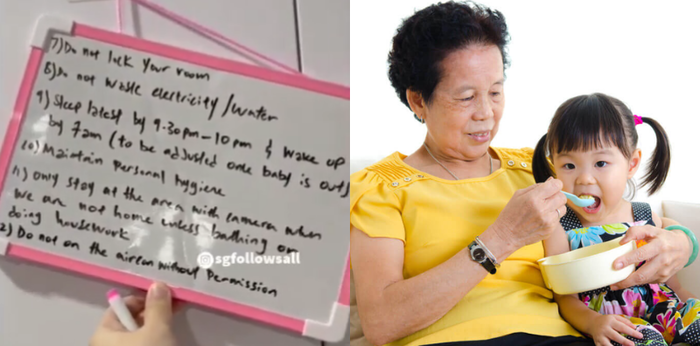 7) Do not lock your room
8) Do not waste electricity/water
9) Sleep latest by 9.30pm-10pm & wake up
by 7am (to be adjusted once baby is out)
10) Maintain personal hygiene
11) Only stay at the area with camera when
we are not home unless bathing or
doing housework
2) Do not on the aircon without permission
@sgfollowsall